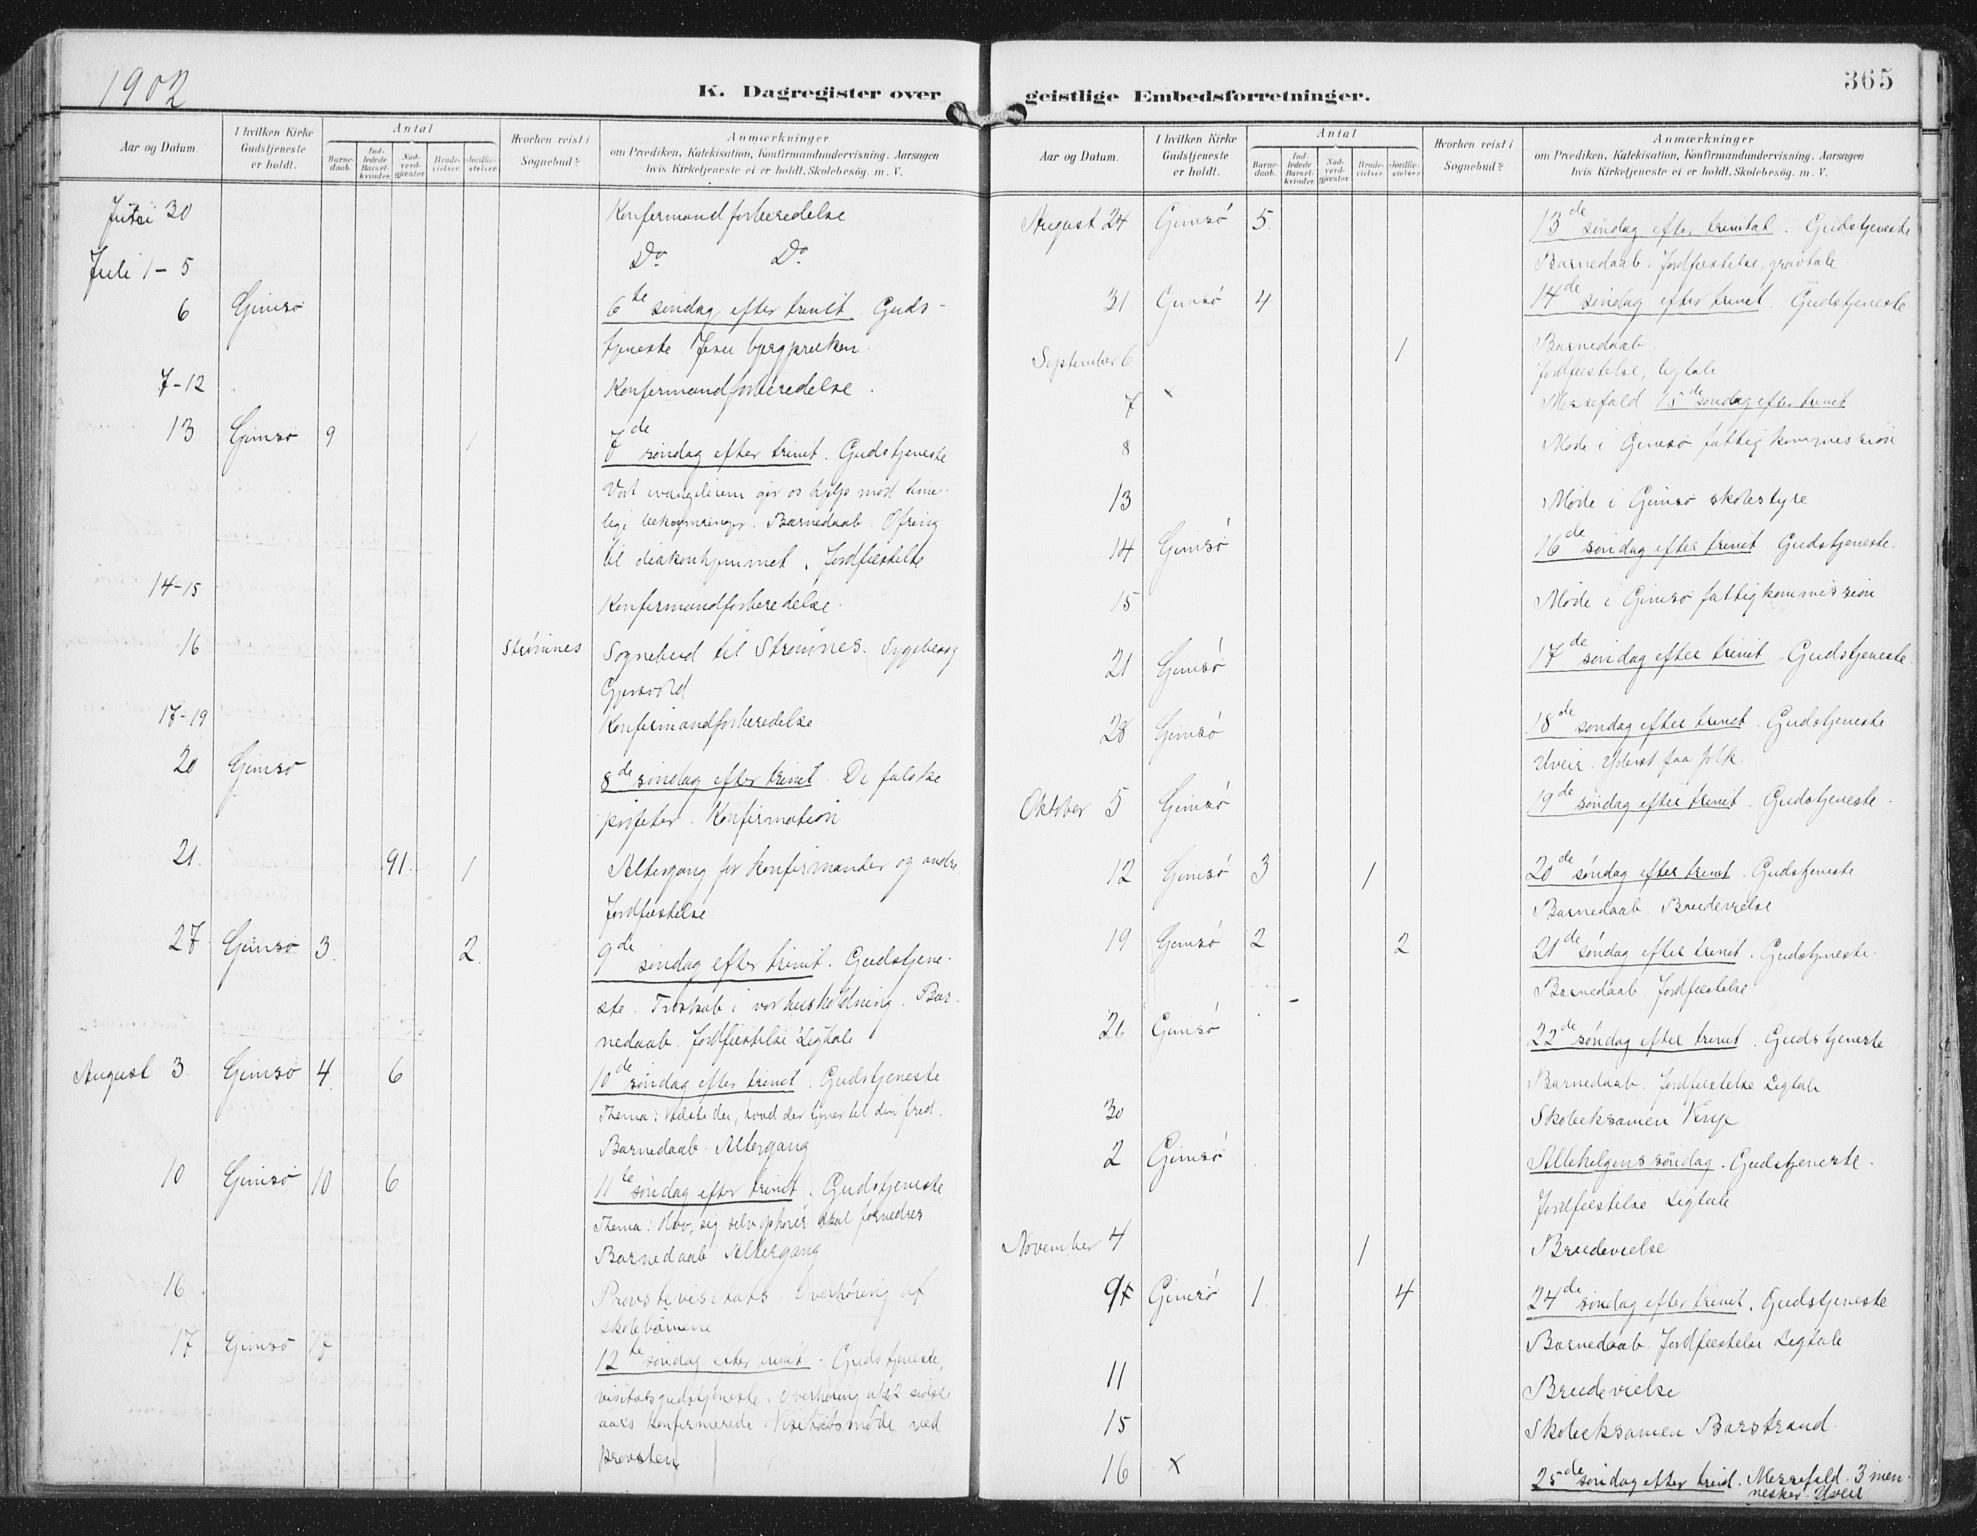 1902
K. Dagregister over
Aar og Datum.
I hvilken Kirke Gudstjeneste er holdt.
Antal
Barnedaab.
Indledede Barselkvinder.
Nadverdgjæster.
Brudevielser.
Jordfæstelser.
Hvorhen reist i Sognebud?
Anmærkninger
om Prædiken, Katekisation, Konfirmandundervisning. Aarsagen
hvis Kirketjeneste ei er holdt. Skolebesøg. m. V.
30 Konfirmandforberedelse
Juli 1-5 Do Do
6 Gimsø 6te søndag efter trinit. Guds-
tjeneste. Jesu bjergpræken.
7-12 Konfirmandforberedelse.
13 Gimsø 9 1 7de
søndag efter trinit. Gudstjeneste
Vort evangelium gir os hjelp mod time-
lige bekymringer. Barnedaab. Ofring
til diakonhjemmet. Jordfæstelse
14-15 Konfirmandforberedelse.
16 Strømnes Sognebud til Strømnes. Sygebesøg
17-19 Konfirmandforberedelse
20 Gimsø 8de søndag efter trinit. De falske
profeter. Konfirmation
21. 91. 1 Altergang for konfirmander og andre.
Jordfæstelse.
27 Gimsø 3. 2. 9de
søndag efter trinit. Gudstjene-
ste. Troskab i vor husholdning. Bar-
nedaab. Jordfæstelse Ligtale
August 3. Gimsø 4. 6 10de søndag efter trinit. Gudstjeneste
Thema: der, hvad der tjener til din fred.
Barnedaab. Altergang
10 Gimsø 10 6 11te søndag efter trinit. Gudstjeneste
Thema: Hvo, sig selv ophøier skal fornedres
Barnedaab Altergang
16. Provstevisitats. Overhøring af
skolebørnene
17 Gimsø 17 12te søndag efter trinit. Gudstjeneste,
visitatsgudstjeneste. Overhøring af 2 sidste
aars konfirmerede. Visitatsmøde ved
provsten
365
geistlige Embedsforretninger.
Aar og Datum.
I hvilken Kirke Gudstjeneste er holdt.
Antal
Barnedaab.
Indledede Barselkvinder.
Nadverdgjæster.
Brudevielser.
Jordfæstelser.
Hvorhen reist i Sognebud?
Anmærkninger
om Prædiken, Katekisation, Konfirmandundervisning. Aarsagen
hvis Kirketjeneste ei er holdt. Skolebesøg. m. V.
August 24 Gimsø 5. 13de søndag efter trinitat. Gudstjeneste
Barnedaab. Jordfæstelse, gravtale.
31 Gimsø 4 14de søndag efter trinit. Gudstjeneste
Barnedaab.
September 6 1 Jordfæstelse, ligtale
7 x Messefald 15de søndag efter trinit
8 Møde i Gimsø fattigkommission
13 Møde i Gimsø skolestyre
14 Gimsø 16de søndag efter trinit Gudstjeneste.
15 Møde i Gimsø fattigkommission
21 Gimsø 17de søndag efter trinit Gudstjeneste.
28 Gimsø 18de søndag efter trinit. Gudstjeneste
Uveir. Yderst faa folk.
Oktober 5 Gimsø 19de søndag efter trinit. Gudstjeneste.
12 Gimsø 3 1 20de søndag efter trinit. Gudstjeneste
Barnedaab. Brudevielse
19 Gimsø 2 2 21de søndag efter trinit. Gudstjeneste.
Barnedaab. Jordfæstelse
26 Gimsø 22de søndag efter trinit. Gudstjeneste
Barnedaab. Jordfæstelse Ligtale
30 Skoleeksamen
2 Gimsø Allehelgenssøndag. Gudstjeneste.
Jordfæstelse Ligtale
November 4 1 Brudevielse
9 Gimsø 1. 4 24de søndag efter trinit. Gudstjeneste
Barnedaab. Jordfæstelse Ligtale
11 Brudevielse
15 Skoleeksamen Barstrand.
16 x 25de søndag efter trinit. Messefald. 3 men-
nesker. Uveir